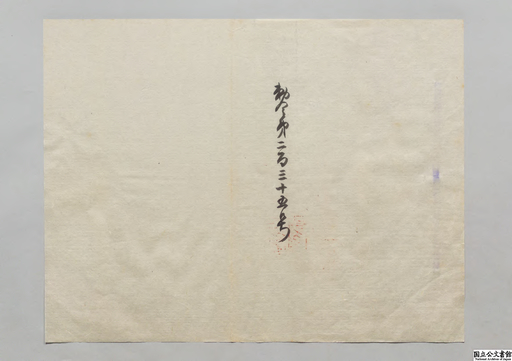 勅令第二百三十五号
国立公文書館
National Archives of Japan